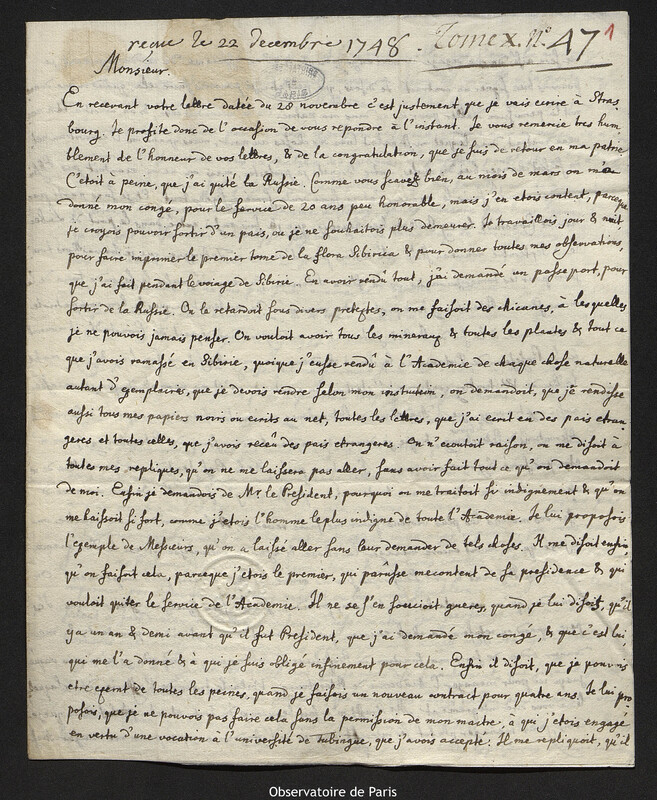 recue le 22 decembre 1748. Tome X. N.º 47 1
Monsieur.
En recevant votre lettre datée du 28 novembre c'est justement que je vais ecrire à Stras
bourg. Je profite donc de l'occasion de vous repondre à l'instant. Je vous remercie tres hum
blement de l'honneur de vos lettres, & de la congratulation, que je suis de retour en ma patrie.
C'étoit à peine, que j'ai quité la Russie. Comme vous scavez bien, au mois de mars on m'a
donné mon congé, pour le service de 20 ans peu honorable, mais j'en etois content, parceque
je croyois pouvoir sortir d'un païs, ou je ne souhaitois plus demeurer. Je travaillois jour & nuit
pour faire imprimer le premier tome de la flora Sibirica & pour donner toutes mes observations,
que j'ai fait pendant le voiage de Sibirie. En avoir rendû tout, j'ai demandé un passeport, pour
sortir de la Russie. On le retardoit sous divers pretextes, on me faisoit des chicanes, à les quelles
je ne pouvois jamais penser. On vouloit avoir tous les mineraux & toutes les plantes & tout ce
que j'avois ramassé en Sibirie, quoique j'eusse rendû à l'Academie de chaque chose naturelle
autant d'exemplaires, que je devois rendre selon mon instruction, on demandoit, que je rendisse
aussi tous mes papiers noirs ou ecrits au net, toutes les lettres, que j'ai ecrit en des païs etran
geres et toutes celles, que j'avois receu des païs etrangeres. On n'ecoutoit raison, on me disoit à
toutes mes repliques, qu'on ne me laissera pas aller, sans avoir fait tout ce qu'on demandoit
de moi. Enfin je demandois de Mr. le President, pourquoi on me traitoit si indignement & qu'on
me haissoit si fort, comme j'etois l'homme le plus indigne de toute l'Academie. Je lui proposois
l'exemple de Messieurs, qu'on a laissé aller sans leur demander de tels choses. Il me disoit enfin
qu'on faisoit cela, parceque j'etois le premier, qui parûsse mecontent de sa presidence & qui
vouloit quiter le service de l'Academie. Il ne se s'en soucioit gueres, quand je lui disois, qu'il
ya un an & demi avant qu'il fut President, que j'ai demandé mon congé, & que c'est lui,
qui me l'a donné & à qui je suis obligé infinement pour cela. Enfin il disoit, que je pouvois
etre exemt de toutes les peines, quand je faisois un nouveau contract pour quatre ans. Je lui pro
posois, que je ne pouvois pas faire cela sans la permission de mon maitre, à qui j'etois engagé
en vertu d'une vocation à l'université de Tubingue, que j'avois accepté. Il me repliquoit, qu'il
Observatoire de Paris